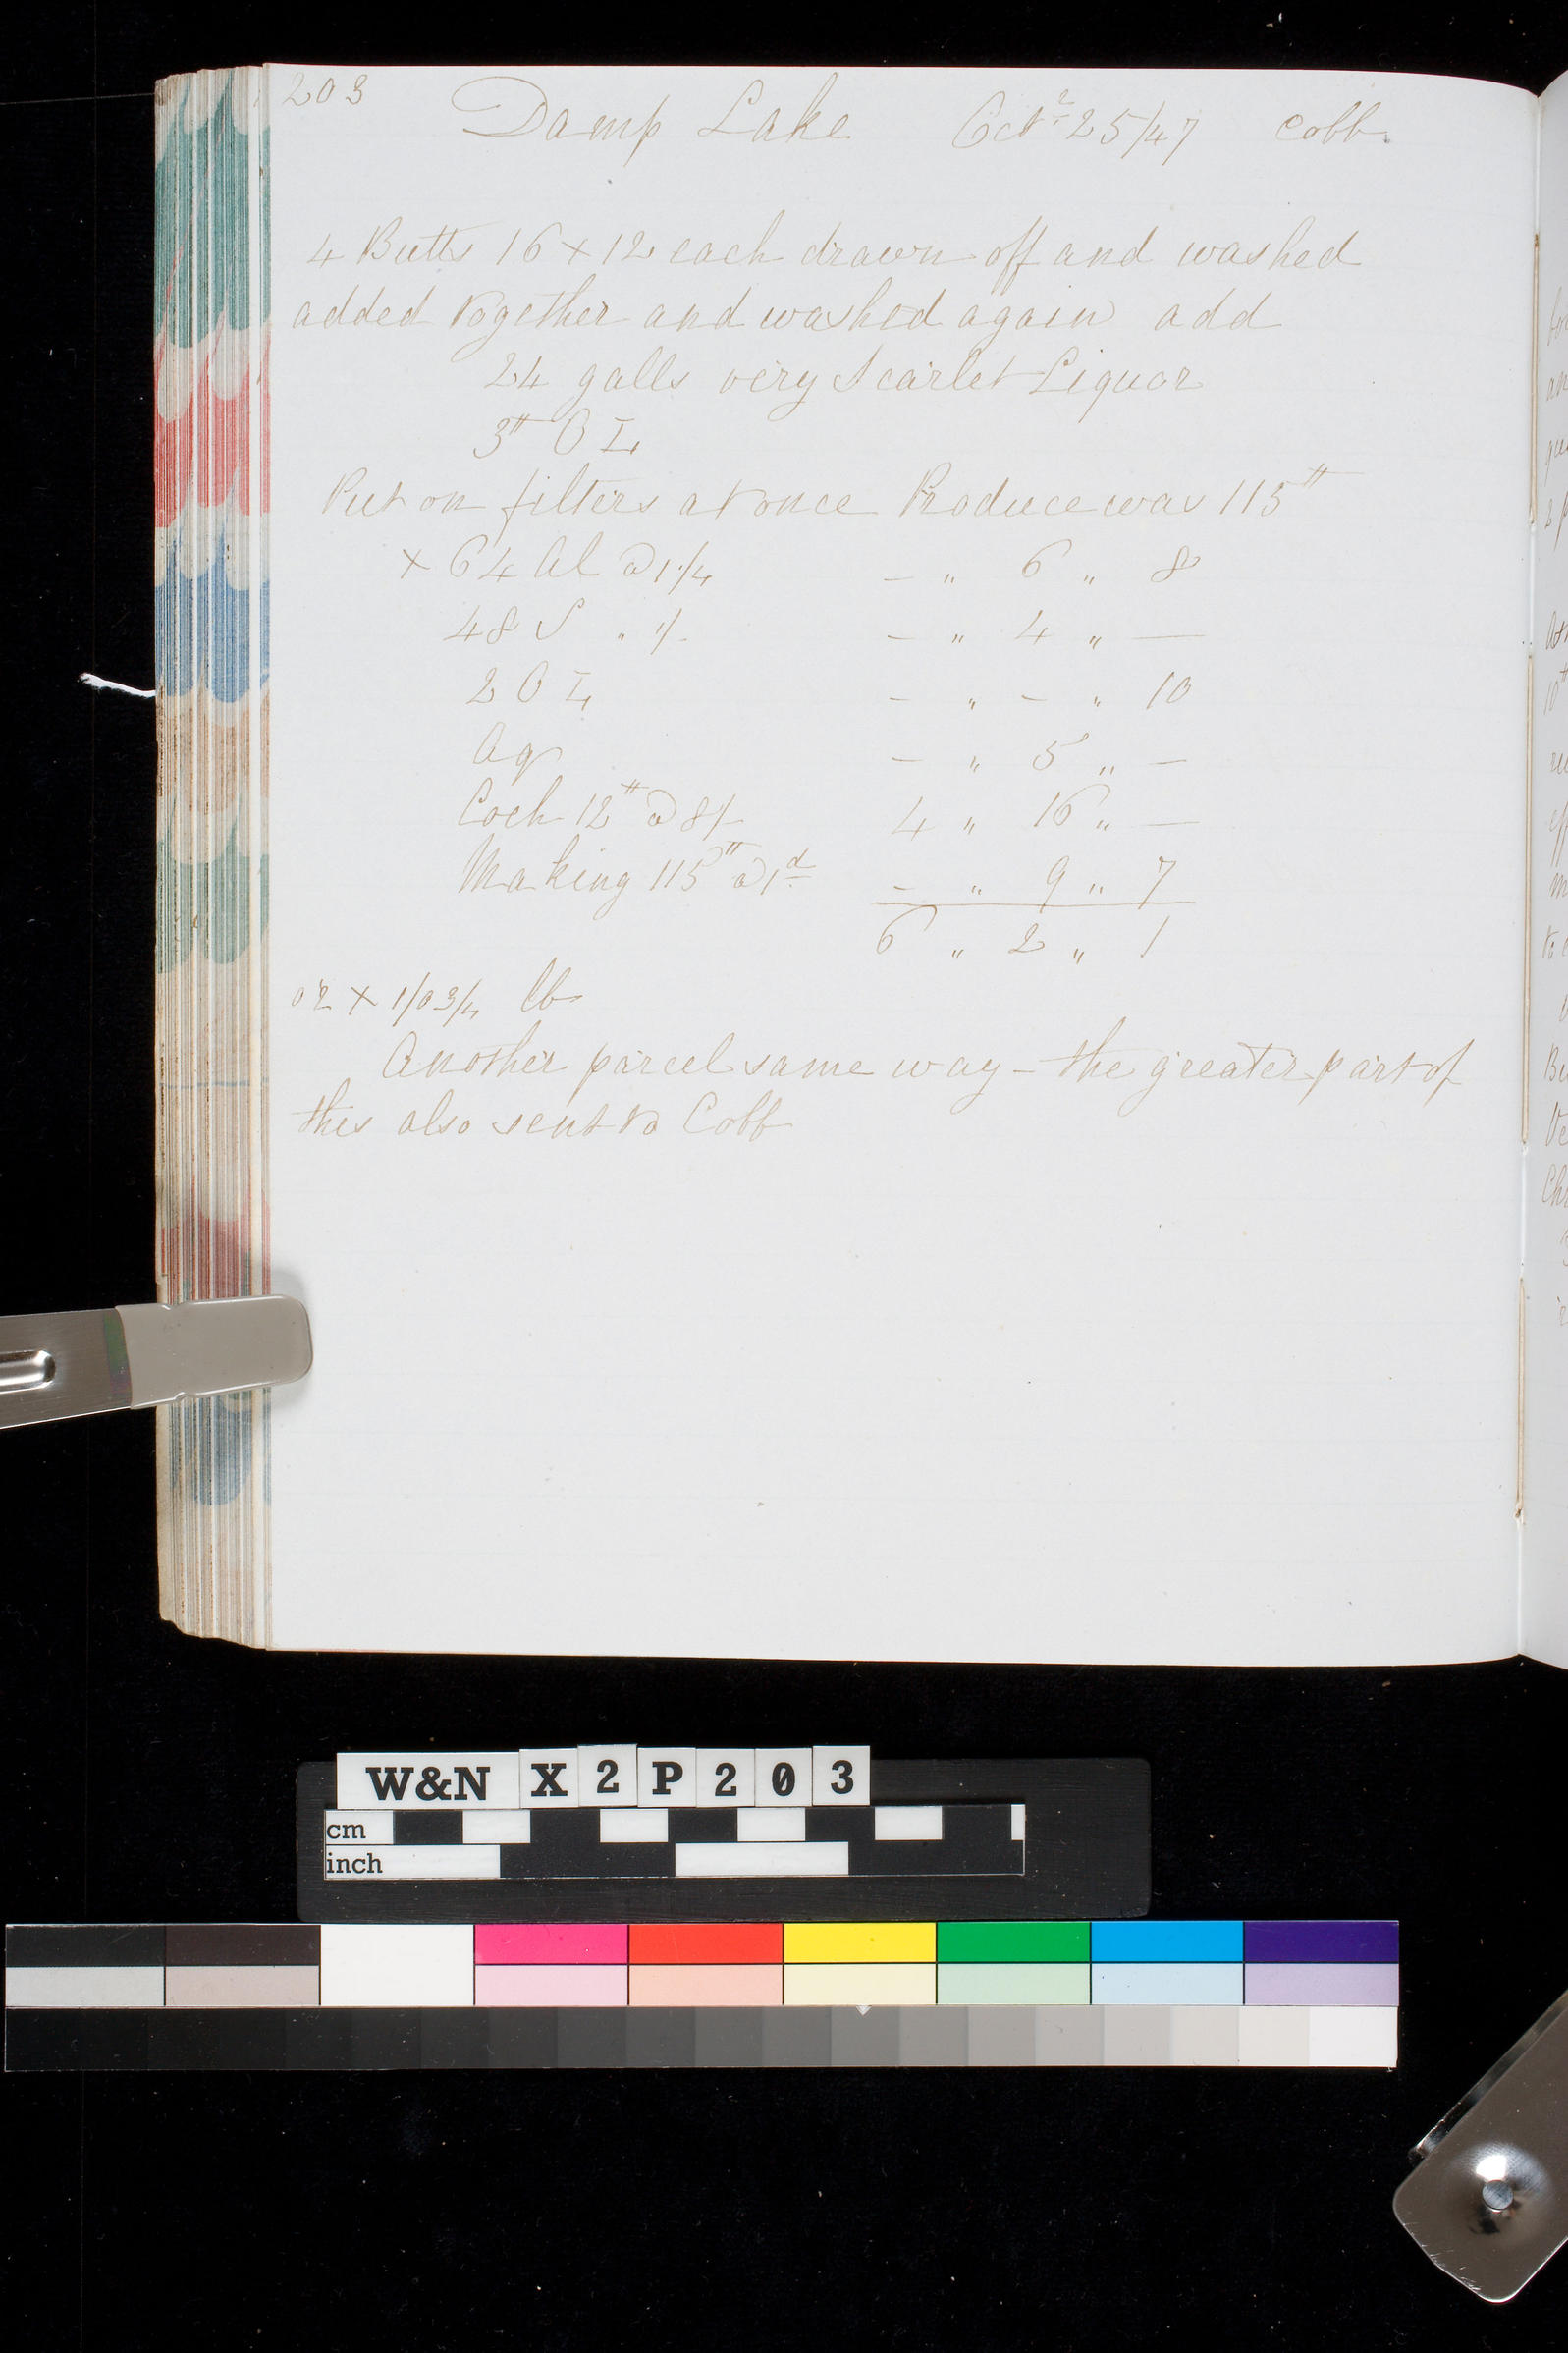 203
Damp Lake Octr 25/47 Cobb
4 Butts 16 x 12 each drawn off and washed
added together and washed again add
24 galls very Scarlet Liquor
3# O L
Put on filters at once Produce was 115#
x 64 Al @ 1 1/4 - " 6 " 8
48 S " 1/- - " 4 " -
2 O L - " - " 10
Aq - " 5 " -
Coch 12# @ 8/- 4 " 16 " -
Making 115# @ 1d - " 9 " 7
6 " 2 " 1
or x 1/0 3/4 lb
Another parcel same way - the greater part of
this also sent to Cobb
W&N X2P203
cm
inch